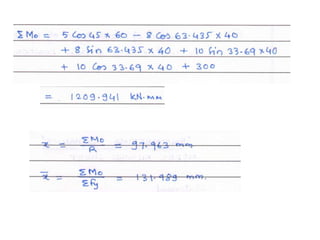 ΣMo = 5 Cos 45 x 60 - 8 Cos 63.435 x 40
+ 8 Sin 63.435 x 40 + 10 Sin 33.69 x 40
+ 10 Cos 33.69 x 40 + 300
= 1209.941 kN.mm
x = ΣMo / R = 97.963 mm
x̄ = ΣMo / ΣFy = 131.989 mm.